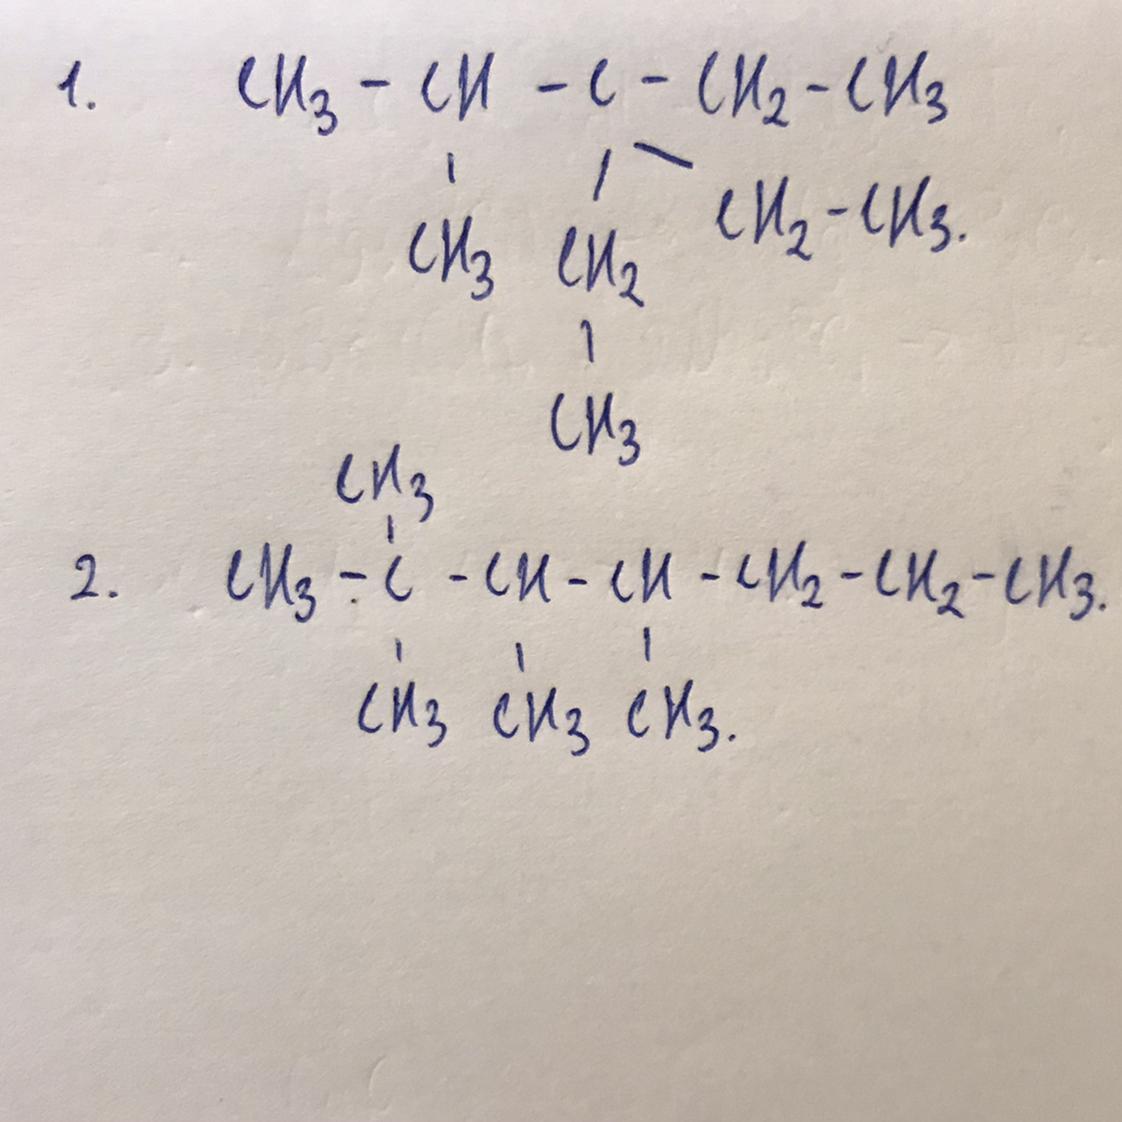 1. CH3 - CH - C - CH2 - CH3
CH2 - CH3.
CH3 CH2
CH3
CH3
2. CH3 - C - CH - CH - CH2 - CH2 - CH3.
CH3 CH3 CH3.